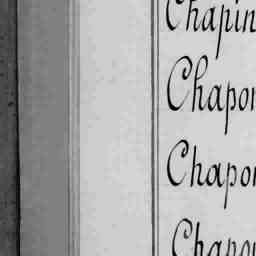 Chapin
Chapon
Chapon
Chapon